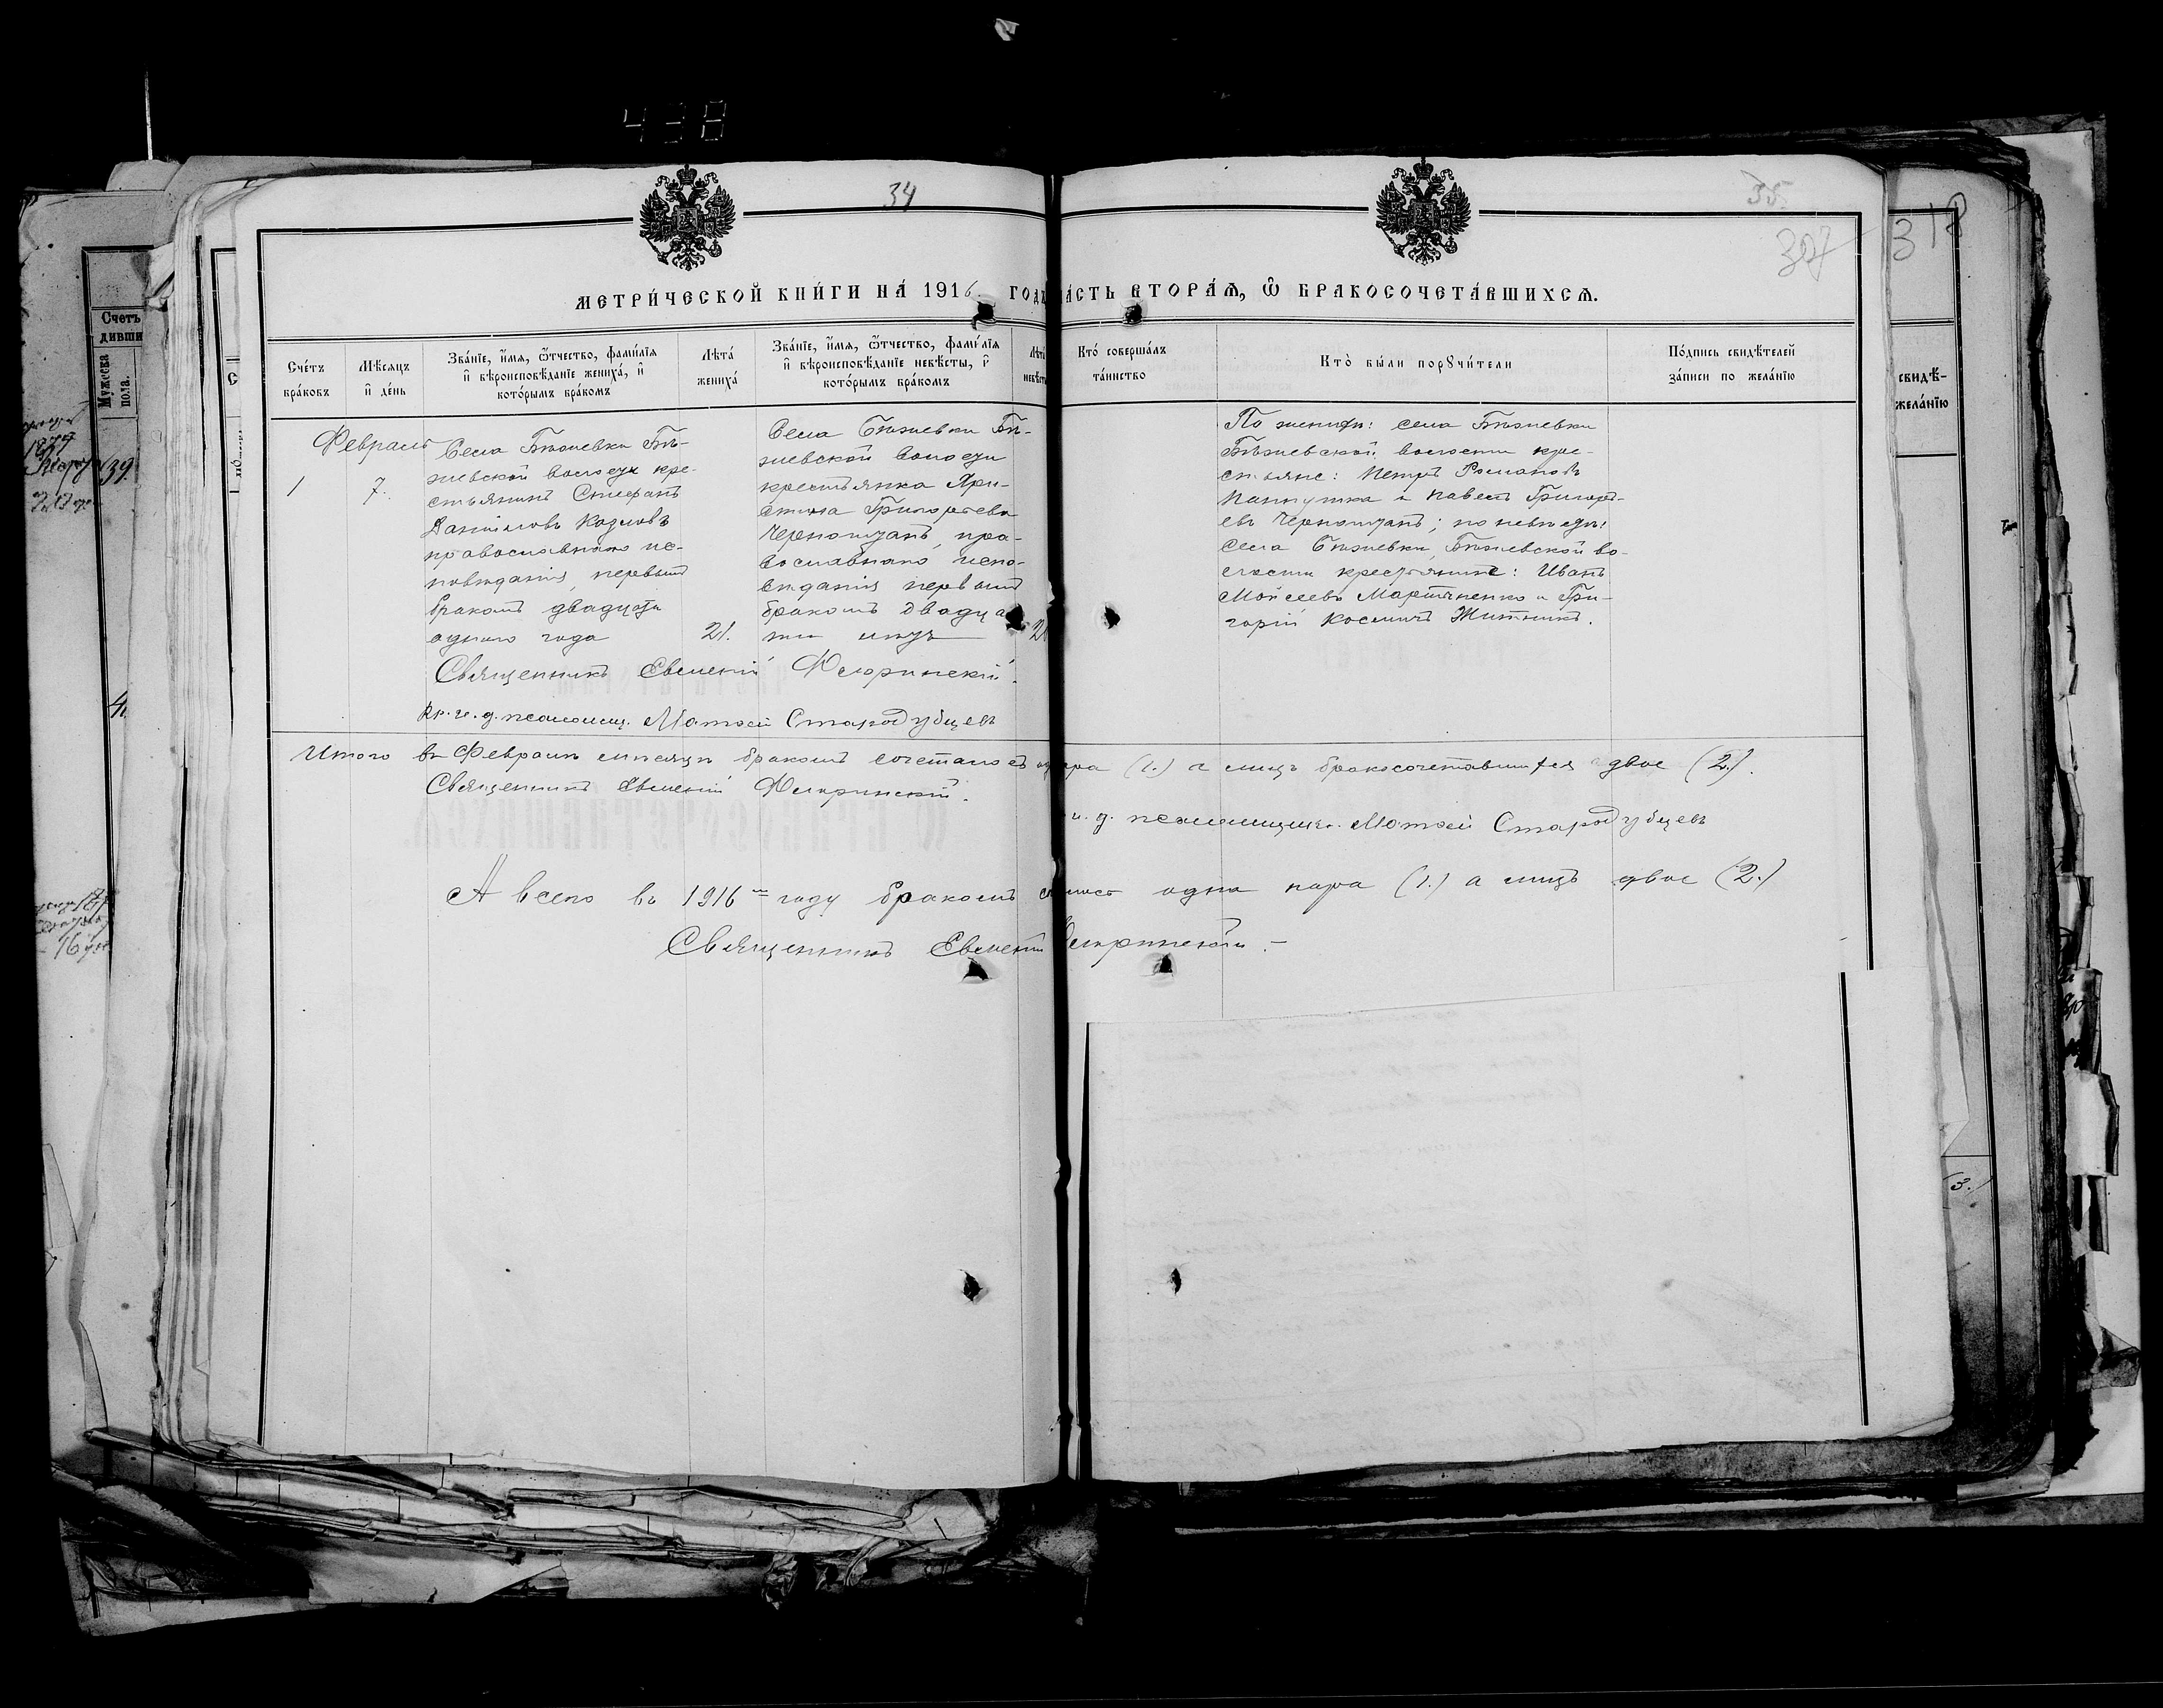 438
34
35.
307
318
МЕТРИ́ЧЕСКОЙ КНИ́ГИ НА́ 1916 ГОДЪ
ЧА́СТЬ ВТОРА́Ѧ, Ѽ БРАКОСОЧЕТА́ВШИХСѦ.
Сче́тъ бра́ковъ
Мѣ́сяцъ и҆ де́нь
Зва́нїе, и҆́мѧ, ѻ҆́тчество, фами́лїѧ
и҆ вѣроисповѣ́данїе жениха́, и҆
кото́рымъ бра́комъ
Лѣта́
жениха́
Зва́нїе, и҆́мѧ, ѻ҆́тчество, фами́лїѧ
и҆ вѣроисповѣ́данїе невѣ́сты, и҆
кото́рымъ бра́комъ
Лѣта́
невѣ́сты
Кто́ соверша́лъ
та́инство
Кто̀ бы́ли порꙋчи́тели
По́дпись свидѣ́телей
за́писи по жела́нїю
Февраль
1
7.
Села Бѣжевки Бѣ-
жевской волости кре-
стьянинъ Стефанъ
Даніиловъ Козловъ
православнаго ис-
повѣданія, первымъ
бракомъ двадцати
одного года
21.
Села Бѣжевки Бѣ-
жевской волости
крестьянка Хри-
стина Григорьева
Черноштанъ, пра-
вославнаго испо-
вѣданія первымъ
бракомъ двадца
ти
По женихѣ: села Бѣжевки
Бѣжевской волости кре-
стьяне: Петръ Романовъ
и Павелъ Григорь-
евъ Черноштанъ; по невѣстѣ:
села Бѣжевки, Бѣжевской во-
лости крестьяне: Иванъ
Моисеевъ Мартыненко и Гри-
горій Косминъ Житникъ.
Священникъ Евменій Флоринскій.
и. д. псаломщ. Матѳей Стародубцевъ
Итого въ Февралѣ мѣсяцѣ бракомъ сочеталось пара (1.) а лицъ бракосочетавшихся двое (2.).
Священникъ Евменій Флоринскій.
и. д. псаломщика Матѳей Стародубцевъ
А всего въ 1916 году бракомъ одна пара (1.) а лицъ двое (2.)
Священникъ Евменій Флоринскій.–
Счетъ
дивши
Мужеска
пола.
39.
4.
свидѣ́-
жела́нїю
(3.)